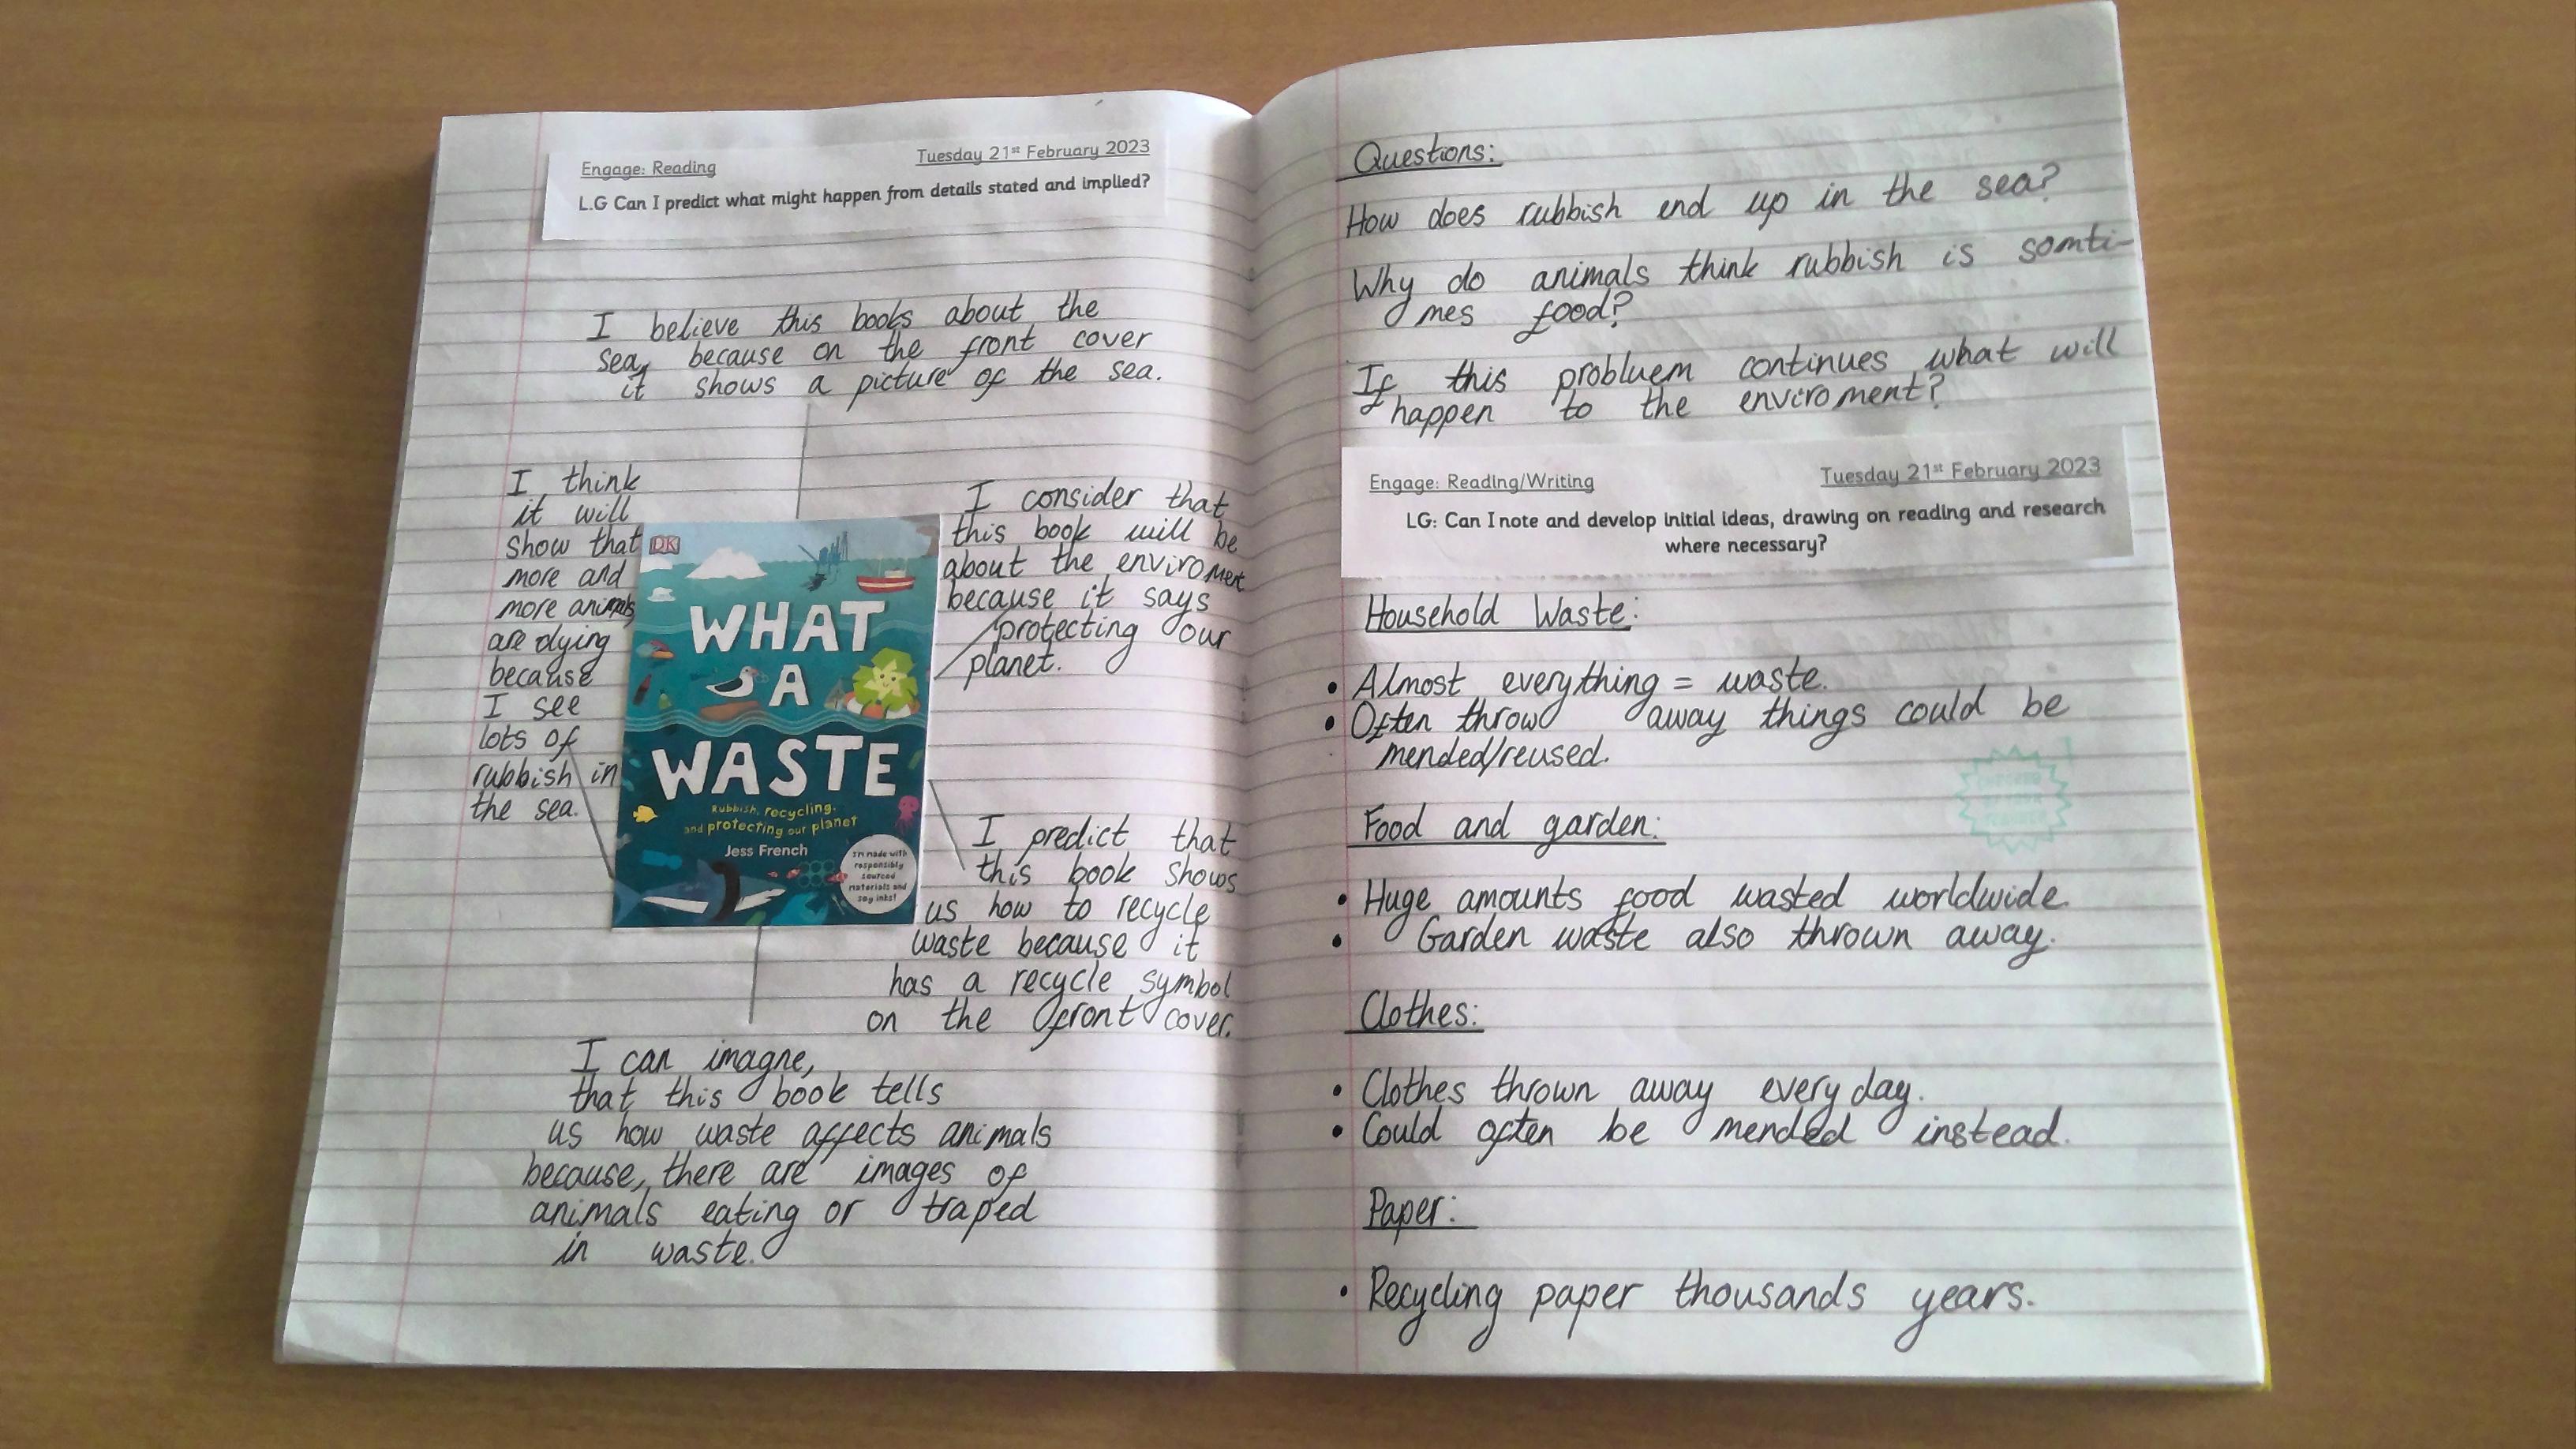 Engage: Reading
Tuesday 21st February 2023
L.G Can I predict what might happen from details stated and implied?
I believe this books about the
sea, because on the front cover
it shows a picture of the sea.
I think
it will
show that
more and
more animals
are dying
because
I see
lots of
rubbish in
the sea.
DK
WHAT
A
WASTE
Rubbish, recycling,
and protecting our planet
Jess French
I'm made with
responsibly
sourced
materials and
soy inks!
I consider that
this book will be
about the enviroment
because it says
protecting our
planet.
I predict that
this book shows
us how to recycle
waste because it
has a recycle symbol
on the front cover.
I can imagne,
that this book tells
us how waste affects animals
because, there are images of
animals eating or traped
in waste.
Questions:
How does rubbish end up in the sea?
Why do animals think rubbish is somti-
mes food?
If this probluem continues what will
happen to the enviroment?
Engage: Reading/Writing
Tuesday 21st February 2023
LG: Can I note and develop initial ideas, drawing on reading and research
where necessary?
Household Waste:
• Almost everything = waste.
• Often throw away things could be
mended/reused.
Food and garden:
• Huge amounts food wasted worldwide.
• Garden waste also thrown away.
Clothes:
• Clothes thrown away every day.
• Could often be mended instead.
Paper:
• Recycling paper thousands years.